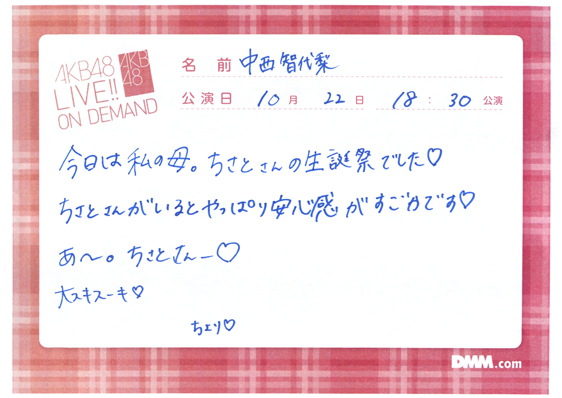 AKB48
LIVE!!
ON DEMAND
AKB
48
名 前 中西智代梨
公演日 10月 22日 18:30公演
今日は私の母。ちさとさんの生誕祭でした♡
ちさとさんがいるとやっぱり安心感がすごかです♡
あ〜。ちさとさんー♡
大スキスーキ♡
ちより♡
DMM.com